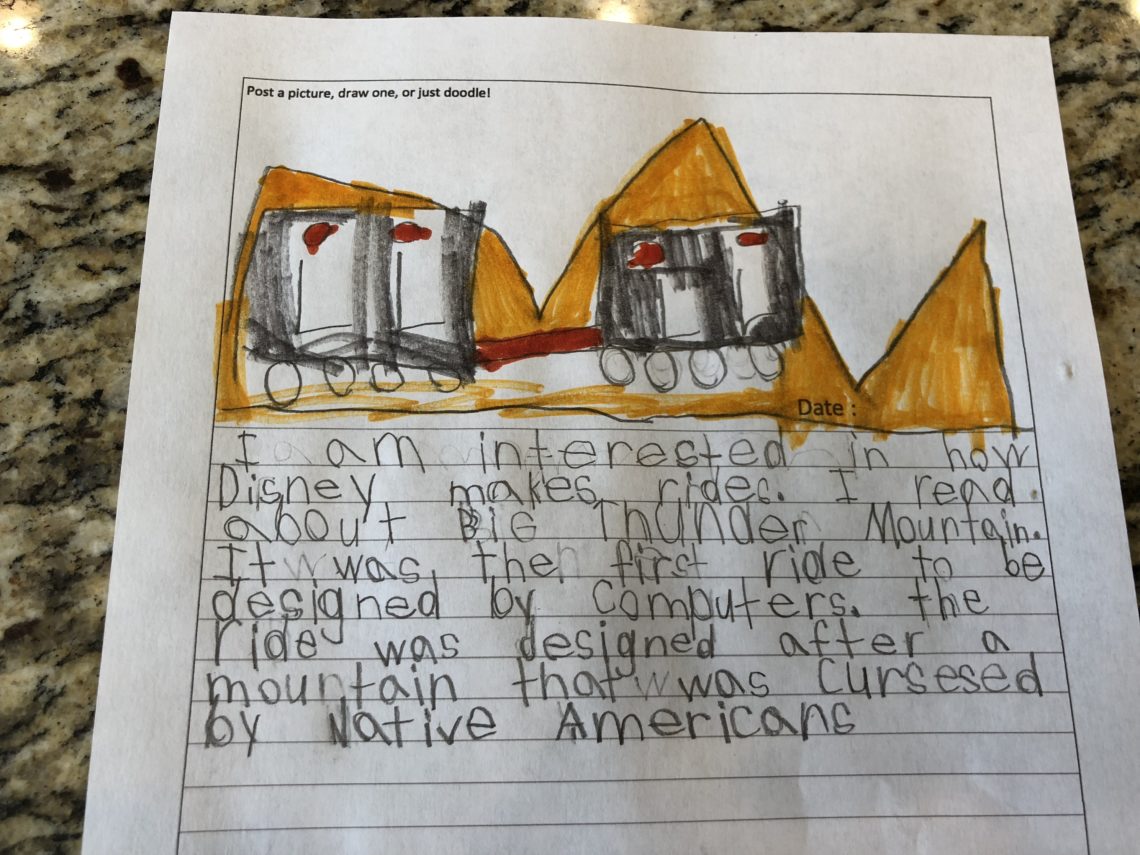 Post a picture, draw one, or just doodle!
Date :
I am interested in how
Disney makes rides. I read
about BiG Thunder Mountain.
It was the first ride to be
designed by Computers. the
ride was designed after a
mountain that was Cursesed
by Native Americans